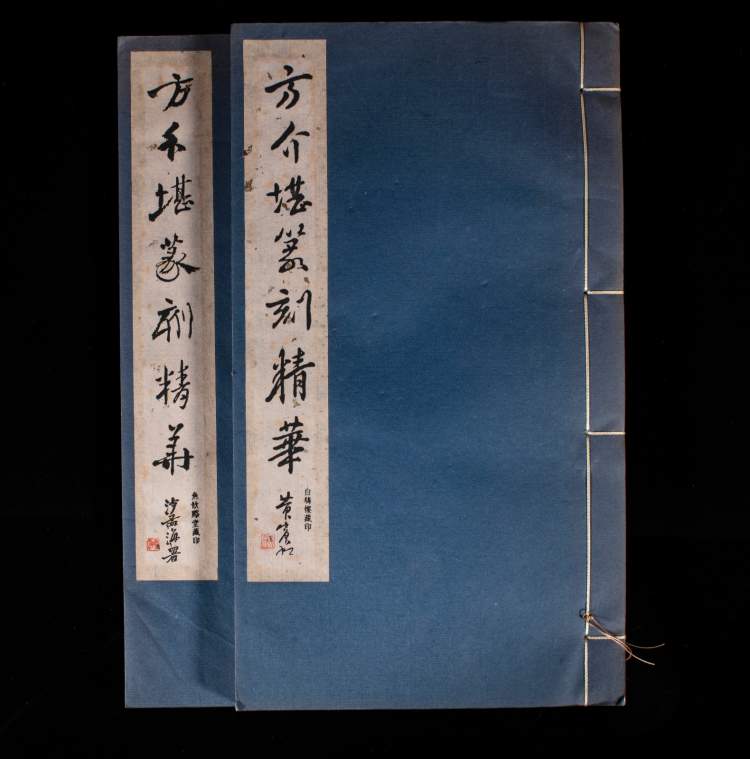 方介堪篆刻精華
藏印
黄賓虹
方介堪篆刻精華
藏印
沙孟海署